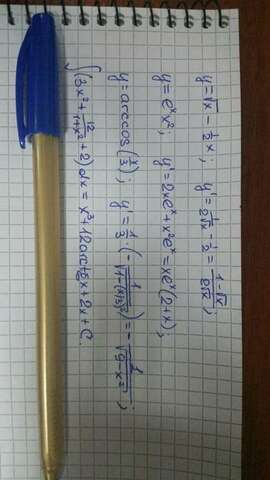 y=√x − 1/2 x; y' = 1/(2√x) − 1/2 = (1−√x)/(2√x);
y=eˣx²; y'=2xeˣ+x²eˣ=xeˣ(2+x);
y=arccos(x/3); y'=1/3·(−1/√(1−(x/3)²))=−1/√(9−x²);
∫(3x²+12/(1+x²)+2)dx = x³+12arctg x+2x+C.